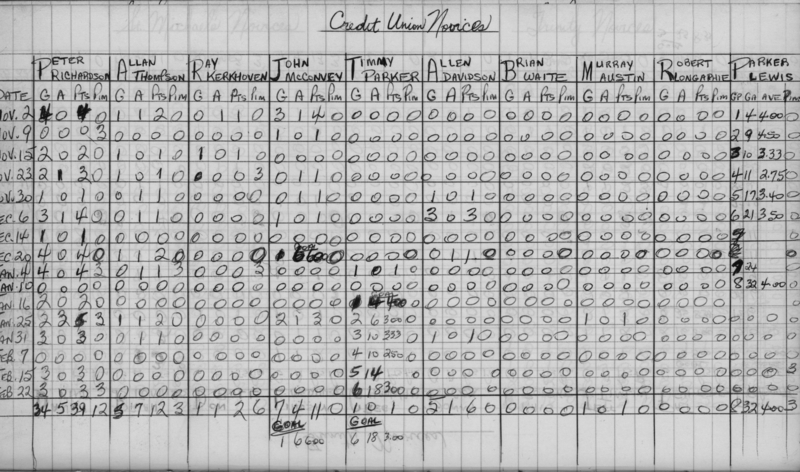 Credit Union Novices
PETER RICHARDSON ALLAN THOMPSON RAY KERKHOVEN JOHN MCCONVEY TIMMY PARKER ALLEN DAVIDSON BRIAN WAITE MURRAY AUSTIN ROBERT PARKER LEWIS
DATE G A Pts Pim G A Pts Pim G A Pts Pim G A Pts Pim G A Pts Pim G A Pts Pim G A Pts Pim G A Pts Pim G A Pts Pim GP GA AVE Pim
NOV. 2 4 0 4 0 1 1 2 0 0 1 1 0 3 1 4 0 0 0 0 0 0 0 0 0 0 0 0 0 0 0 0 0 0 0 0 0 1 4 4.00
NOV. 9 0 0 0 3 0 0 0 0 0 0 0 0 1 0 1 0 0 0 0 0 0 0 0 0 0 0 0 0 0 0 0 0 0 0 0 0 2 9 4.50
NOV. 15 2 0 2 0 1 0 1 0 1 0 1 0 0 0 0 0 0 0 0 0 0 0 0 0 0 0 0 0 0 0 0 0 0 0 0 0 3 10 3.33
NOV. 23 2 1 3 0 1 0 1 0 0 0 0 3 0 1 1 0 0 0 0 0 0 0 0 0 0 0 0 0 0 0 0 0 0 0 0 0 4 11 2.75
NOV. 30 1 0 1 0 0 1 1 0 0 0 0 0 0 1 1 0 0 0 0 0 1 0 1 0 0 0 0 0 0 0 0 0 0 0 0 0 5 17 3.40
DEC. 6 3 1 4 0 0 1 1 0 0 0 0 0 1 0 1 0 0 0 0 0 3 0 3 0 0 0 0 0 0 0 0 0 0 0 0 0 6 21 3.50
DEC. 14 1 0 1 0 0 0 0 0 0 0 0 0 0 0 0 0 0 0 0 0 0 0 0 0 0 0 0 0 0 0 0 0 0 0 0 0
DEC. 20 4 0 4 0 1 1 2 0 0 0 0 0 1 6 6.00 0 0 0 0 0 1 1 0 0 0 0 0 0 0 0 0 0 0 0 0
JAN. 4 4 0 4 3 0 1 1 3 0 0 0 3 0 0 0 0 1 0 1 0 0 0 0 0 0 0 0 0 0 0 0 0 0 0 0 0 24
JAN. 10 0 0 0 0 0 0 0 0 0 0 0 0 0 0 0 0 0 0 0 0 0 0 0 0 0 0 0 0 0 0 0 0 0 0 0 0 8 32 4.00 0
JAN. 16 2 0 2 0 0 0 0 0 0 0 0 0 0 0 0 0 1 4 4.00 0 0 0 0 0 0 0 0 0 0 0 0 0 0 0 0
JAN. 25 2 3 5 3 1 1 2 0 0 0 0 0 2 1 3 0 2 6 3.00 0 0 0 0 0 0 0 0 1 0 1 0 0 0 0 0 0 0 0 0
JAN 31 3 0 3 0 0 1 1 0 0 0 0 0 0 0 0 0 3 10 3.33 1 0 1 0 0 0 0 0 0 0 0 0 0 0 0 0 0 0 0 0
FEB. 7 0 0 0 0 0 0 0 0 0 0 0 0 0 0 0 0 4 10 2.50 0 0 0 0 0 0 0 0 0 0 0 0 0 0 0 0 0 0 0 0
FEB. 15 3 0 3 0 0 0 0 0 0 0 0 0 0 0 0 0 5 14 0 0 0 0 0 0 0 0 0 0 0 0 0 0 0 0 0 0 0 3
FEB. 22 3 0 3 3 0 0 0 0 0 0 0 0 0 0 0 0 6 18 3.00 0 0 0 0 0 0 0 0 0 0 0 0 0 0 0 0 0 0 0 0
34 5 39 12 5 7 12 3 1 1 2 6 7 4 11 0 1 0 1 0 0 0 0 0 1 0 1 0 0 0 0 0 8 32 4.00 3
GOAL GOAL
1 6 6.00 6 18 3.00